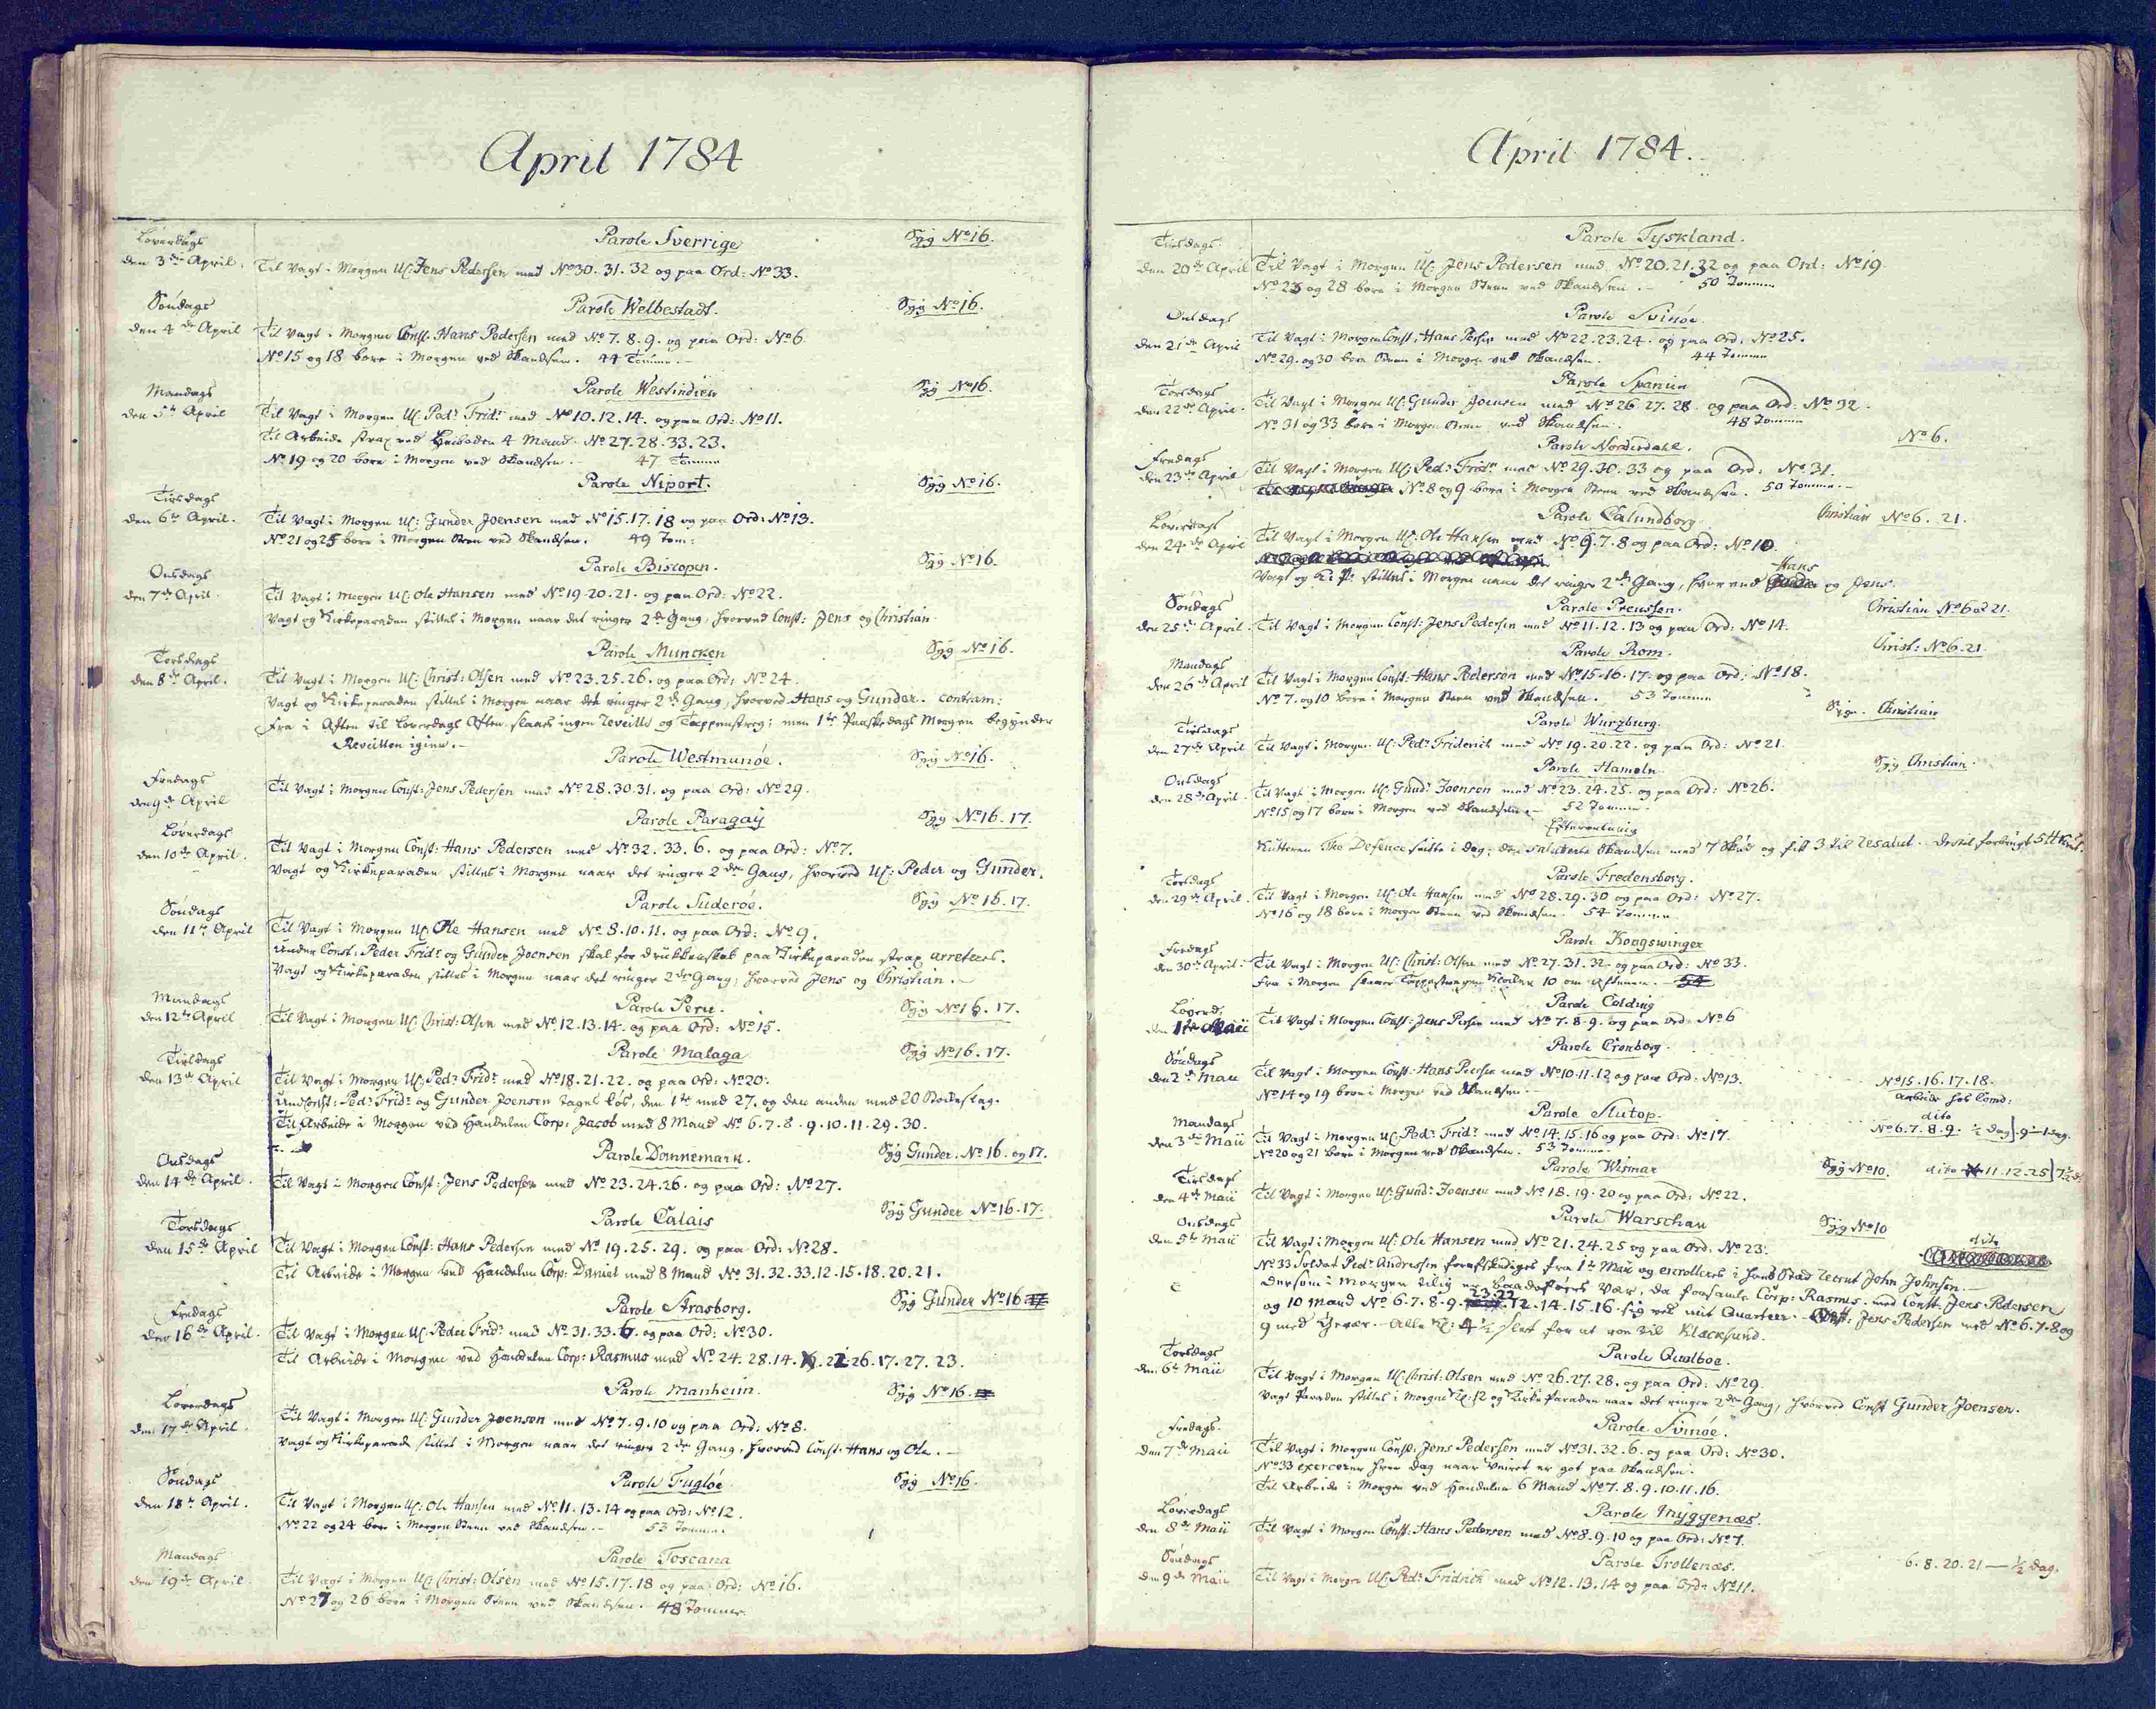 April 1784
Løverdags Parole Sverrige Syg No 16.
den 3de April. Til Vagt i Morgen Uc: Jens Pedersen med No 30. 31. 32 og paa Ord: No 33.
Søndags Parole Welbestadt. Syg No 16.
den 4de April Til Vagt i Morgen Const. Hans Pedersen med No 7. 8. 9. og paa Ord: No 6
No 15 og 18 bore i Morgen ved Skandsen. 44 Tomme.
Mandags Parole Westindien Syg No 16.
den 5te April Til Vagt i Morgen Uc. Pedr Fridr med No 10. 12. 14. og paa Ord: No 11.
Til Arbeide strax ved 4 Mand No 27. 28. 33. 23.
No 19 og 20 bore i Morgen ved Skandsen. 47 Tomme
Tirsdags Parole Niport. Syg No 16.
den 6te April. Til Vagt i Morgen Uc: Gunder Joensen med No 15. 17. 18 og paa Ord: No 13.
No 21 og 25 bore i Morgen Steen ved Skandsen. 49 Tom:
Onsdags Parole Biscopen. Syg No 16.
den 7de April. Til Vagt i Morgen Uc: Ole Hansen med No 19. 20. 21. og paa Ord: No 22.
Vagt og Kirkeparaden stilles i Morgen naar det ringer 2de Gang, hvorved Const: Jens og Christian.
Torsdags Parole Muncken Syg No 16.
den 8de April. Til Vagt i Morgen Uc: Christ: Olsen med No 23. 25. 26. og paa Ord: No 24.
Vagt og Kirkeparaden stilles i Morgen naar det ringer 2de Gang, hvorved Hans og Gunder. contram:
Fra i Aften til Løverdags Aften slaaes ingen Reveille og Tappenstreg; men 1te Paaskedags Morgen begynder
Reveillen igien.
Fredags Parole Westmunøe. Syg No 16.
den 9de April Til Vagt i Morgen Const: Jens Pedersen med No 28. 30. 31. og paa Ord: No 29.
Løverdags Parole Paragaÿ Syg No 16. 17.
den 10de April. Til Vagt i Morgen Const: Hans Pedersen med No 32. 33. 6. og paa Ord: No 7.
Vagt og Kirkeparaden stilles i Morgen naar det ringer 2den Gang, hvorved Uc: Peder og Gunder.
Søndags Parole Suderoe. Syg No 16. 17.
den 11te April Til Vagt i Morgen Uc: Ole Hansen med No 8. 10. 11. og paa Ord: No 9.
Under Const: Peder Fridr og Gunder Joensen skal for Drukkenskab paa Kirkeparaden strax arreteres.
Vagt og Kirkeparaden stilles i Morgen naar det ringer 2de Gang, hvorved Jens og Christian.
Mandags Parole Peru. Syg No 16. 17.
den 12te April Til Vagt i Morgen Uc: Christ: Olsen med No 12. 13. 14. og paa Ord: No 15.
Tirsdags Parole Malaga Syg No 16. 17.
den 13de April Til Vagt i Morgen Uc: Pedr Fridr med No 18. 21. 22. og paa Ord: No 20.
UndConst: Pedr Fridr og Gunder Joensen tages løs, den 1te med 27. og den anden med 20 Stokkeslag.
Til Arbeide i Morgen ved Handelen Corp: Jacob med 8 Mand No 6. 7. 8. 9. 10. 11. 29. 30.
Onsdags Parole Dannemark. Syg Gunder. No 16. og 17.
den 14de April. Til Vagt i Morgen Const: Jens Pedersen med No 23. 24. 26. og paa Ord: No 27.
Torsdags Parole Calais Syg Gunder No 16. 17.
den 15de April Til Vagt i Morgen Const: Hans Pedersen med No 19. 25. 29. og paa Ord: No 28.
Til Arbeide i Morgen ved Handelen Corp: Daniel med 8 Mand No 31. 32. 33. 12. 15. 18. 20. 21.
Fredags Parole Strasborg. Syg Gunder No 16
den 16de April. Til Vagt i Morgen Uc. Peder Fridr med No 31. 33. 6. og paa Ord: No 30.
Til Arbeide i Morgen ved Handelen Corp: Rasmus med No 24. 28. 14. 22. 26. 17. 27. 23.
Løverdags Parole Manheim. Syg No 16.
den 17de April. Til Vagt i Morgen Uc: Gunder Joensen med No 7. 9. 10 og paa Ord: No 8.
Vagt og Kirkeparade stilles i Morgen naar det ringer 2de Gang, hvorved Const: Hans og Ole.
Søndags Parole Fugløe Syg No 16.
den 18de April. Til Vagt i Morgen Uc: Ole Hansen med No 11. 13. 14 og paa Ord: No 12.
No 22 og 24 bore i Morgen Steen ved Skandsen. 53 Tomme.
Mandags Parole Toscana
den 19de April. Til Vagt i Morgen Uc: Christ: Olsen med No 15. 17. 18 og paa Ord: No 16.
No 27 og 26 bore i Morgen Steen ved Skandsen. 48 Tomme.
April 1784.
Tirsdags Parole Tyskland.
den 20de April Til Vagt i Morgen Uc: Jens Pedersen med No 20. 21. 32 og paa Ord: No 19.
No 23 og 28 bore i Morgen Steen ved Skandsen. 50 Tomme
Onsdags Parole Svinøe.
den 21de April Til Vagt i Morgen Const: Hans Persen med No 22. 23. 24. og paa Ord: No 25.
No 29. og 30 bore Steen i Morgen ved Skandsen. 44 Tomme
Torsdags Parole Spanien
den 22de April. Til Vagt i Morgen Uc: Gunder Joensen med No 26. 27. 28. og paa Ord: No 32.
No 31 og 33 bore i Morgen Steen ved Skandsen. 48 Tomme
Fredags Parole Norderdahl. No 6.
den 23de April Til Vagt i Morgen Uc: Pedr Fridr med No 29. 30. 33 og paa Ord: No 31.
No 8 og 9 bore i Morgen Steen ved Skandsen. 50 Tomme.
Løverdags Parole Calundborg Christian No 6. 21.
den 24de April Til Vagt i Morgen Uc: Ole Hansen med No 9. 7. 8 og paa Ord: No 10.
Hans
Vagt og K: P: stilles i Morgen naar det ringer 2de Gang, hvorved og Jens.
Søndags Parole Preussen. Christian No 6 og 21.
den 25de April. Til Vagt i Morgen Const: Jens Pedersen med No 11. 12. 13 og paa Ord: No 14.
Mandags Parole Rom. Christ: No 6. 21.
den 26de April Til Vagt i Morgen Const: Hans Pedersen med No 15. 16. 17. og paa Ord: No 18.
No 7. og 10 bore i Morgen Steen ved Skandsen. 53 Tomme
Tirsdags Parole Wurzburg. Syge. Christian
den 27de April Til Vagt i Morgen Uc: Pedr Friderich med No 19. 20. 22. og paa Ord: No 21.
Onsdags Parole Hameln Syg Christian.
den 28de April. Til Vagt i Morgen Uc: Gundr Joensen med No 23. 24. 25. og paa Ord: No 26.
No 15 og 17 bore i Morgen ved Skandsen. 52 Tomme.
Efterretning
Kutteren The Defence seilte i Dag; den saluterte Skandsen med 7 Skud og fik 3 til Resalut.
Torsdags Parole Fredensborg.
den 29de April. Til Vagt i Morgen Uc: Ole Hansen med No 28. 29. 30 og paa Ord: No 27.
No 16 og 18 bore i Morgen Steen ved Skandsen. 54 Tomme
Fredags Parole Kongswinger
den 30te April: Til Vagt i Morgen Uc: Christ: Olsen med No 27. 31. 32. og paa Ord: No 33.
Fra i Morgen slaaes Tappestregen Klocken 10 om Aftenen.
Løverd: Parole Colding
den 1te Maii Til Vagt i Morgen Const: Jens Persen med No 7. 8. 9. og paa Ord: No 6
Søndags Parole Cronborg.
den 2de Maii Til Vagt i Morgen Const: Hans Persen med No 10. 11. 12 og paa Ord: No 13. No 15. 16. 17. 18.
No 14 og 19 bore i Morgen ved Skandsen. arbeide hos Comd:
Mandags Parole Slutop. dito
den 3de Maii Til Vagt i Morgen Uc: Pedr Fridr med No 14. 15. 16 og paa Ord: No 17. No 6. 7. 8. 9. ½ dag
No 20 og 21 bore i Morgen ved Skandsen. 53 Tomme.
Tirsdags Parole Wismar Syg No 10. dito 11. 12. 25
den 4de Maii Til Vagt i Morgen Uc: Gundr Joensen med No 18. 19. 20 og paa Ord: No 22.
Onsdags Parole Warschau Syg No 10
den 5te Maii Til Vagt i Morgen Uc: Ole Hansen med No 21. 24. 25 og paa Ord: No 23. dito
No 33 Soldat Pedr Andresen forafskediges fra 1te Maii og enrolleres i hans Stad Recrut John Johnsen.
dersom i Morgen tilig er Vær, da forsamle Corp: Rasmus med Const Jens Pedersen
23. 22
og 10 Mand No 6. 7. 8. 9. 12. 14. 15. 16. sig ved mit Quarteer. Const: Jens Pedersen med No 6. 7. 8 og
9 med Gevær. Alle Kl: 4½ slet for at roe til Klacksund.
Torsdags Parole Qvalboe.
den 6te Maii Til Vagt i Morgen Uc: Christ: Olsen med No 26. 27. 28. og paa Ord: No 29
Vagt Paraden stilles i Morgen Kl: 12 og Kirke Paraden naar det ringer 2den Gang, hvorved Const Gunder Joensen.
Fredags. Parole Svinøe.
den 7de Maii Til Vagt i Morgen Const: Jens Pedersen med No 31. 32. 6. og paa Ord: No 30.
No 33 exercerer hver Dag naar Veiret er got paa Skandsen.
Til Arbeide i Morgen ved Handelen 6 Mand No 7. 8. 9. 10. 11. 16.
Løverdags Parole Myggenæs.
den 8de Maii Til Vagt i Morgen Const: Hans Pedersen med No 8. 9. 10 og paa Ord: No 7.
Søndags Parole Trollenæs. 6. 8. 20. 21 — ½ Dag.
den 9de Maii Til Vagt i Morgen Uc: Pedr Fridrich med No 12. 13. 14 og paa Ord: No 11.